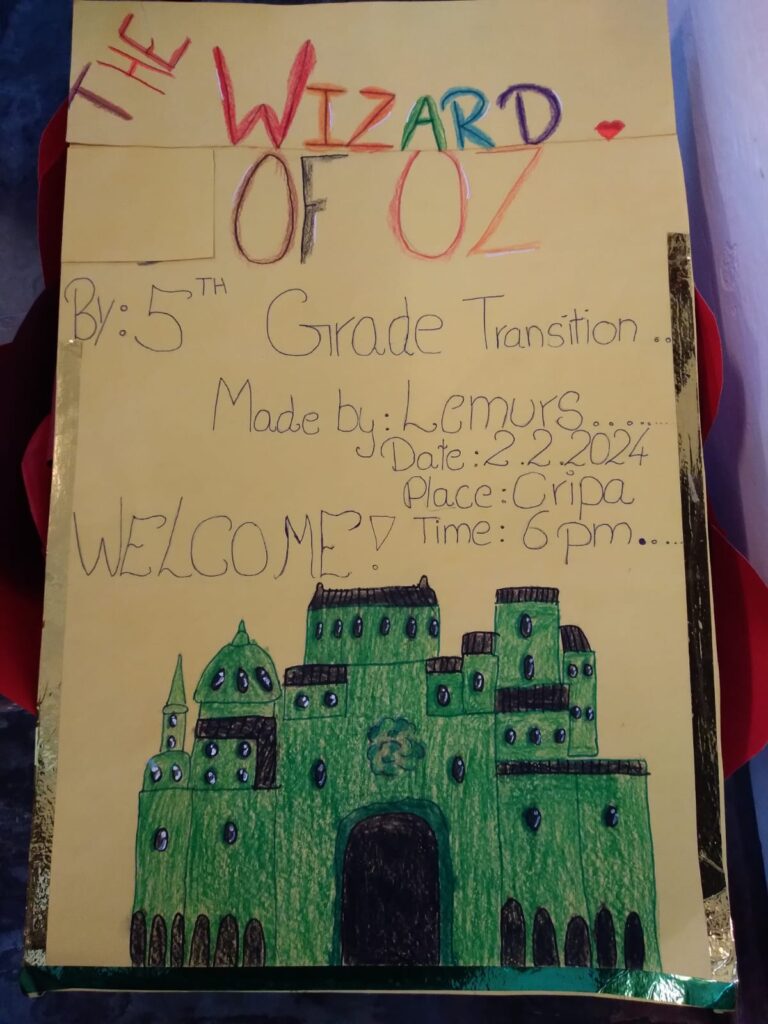 THE WIZARD
OF OZ
By: 5TH Grade Transition ..
Made by: Lemurs........
Date: 2.2.2024
Place: Cripa
WELCOME! Time: 6 pm.....